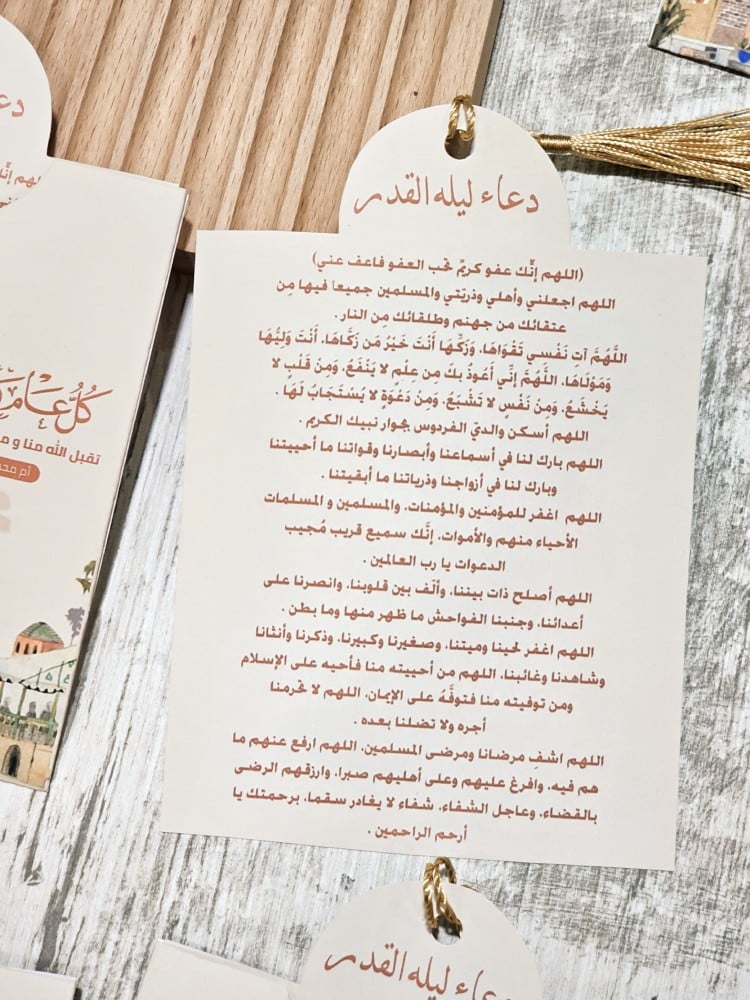 دعاء ليله القدر
(اللهم إنَّك عفو كريمٌ تحب العفو فاعف عني)
اللهم اجعلني وأهلي وذريّتي والمسلمين جميعا فيها مِن
عتقائك من جهنم وطلقائك مِن النار .
اللَّهُمَّ آتِ نَفْسِي تَقْوَاهَا، وَزَكِّهَا أَنْتَ خَيْرُ مَن زَكَّاهَا، أَنْتَ وَلِيُّهَا
وَمَوْلَاهَا، اللَّهُمَّ إنِّي أَعُوذُ بكَ مِن عِلْمٍ لا يَنْفَعُ، وَمِنْ قَلْبٍ لا
يَخْشَعُ، وَمِنْ نَفْسٍ لا تَشْبَعُ، وَمِنْ دَعْوَةٍ لا يُسْتَجَابُ لَهَا .
اللهم أسكن والديّ الفردوس بجوار نبيك الكريم .
اللهم بارك لنا في أسماعنا وأبصارنا وقواتنا ما أحييتنا
وبارك لنا في أزواجنا وذرياتنا ما أبقيتنا .
اللهم اغفر للمؤمنين والمؤمنات، والمسلمين و المسلمات
الأحياء منهم والأموات، إنَّك سميع قريب مُجيب
الدعوات يا رب العالمين .
اللهم أصلح ذات بيننا، وألّف بين قلوبنا، وانصرنا على
أعدائنا، وجنبنا الفواحش ما ظهر منها وما بطن .
اللهم اغفر لحينا وميتنا، وصغيرنا وكبيرنا، وذكرنا وأنثانا
وشاهدنا وغائبنا، اللهم من أحييته منا فأحيه على الإسلام
ومن توفيته منا فتوفَّهُ على الإيمان، اللهم لا تحرمنا
أجره ولا تضلنا بعده .
اللهم اشفِ مرضانا ومرضى المسلمين، اللهم ارفع عنهم ما
هم فيه، وافرغ عليهم وعلى أهليهم صبرا، وارزقهم الرضى
بالقضاء، وعاجل الشفاء، شفاء لا يغادر سقما، برحمتك يا
أرحم الراحمين .
كُلُّ عَامٍ
تقبل الله منا و
أم
دعاء ليله القدر